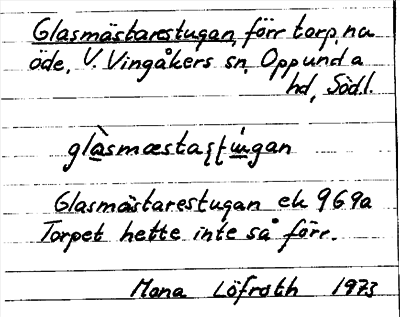 Glasmästarestugan, förr torp, nu
öde, V. Vingåkers sn, Oppunda
hd, Södl.
Glasmästarestugan ek 969a
Torpet hette inte så förr.
Mona Löfroth 1973